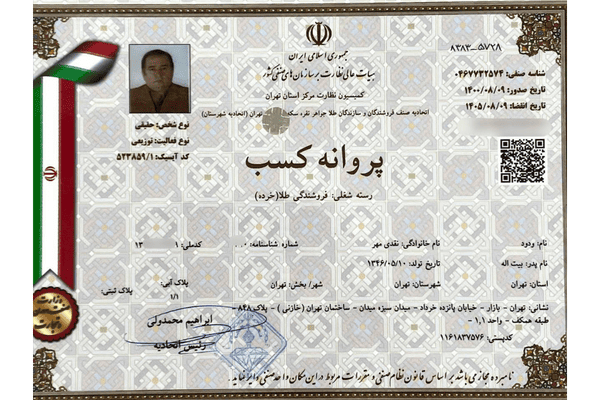 جمهوری اسلامی ایران
هیات عالی نظارت بر سازمان های صنفی کشور
کمیسیون نظارت مرکز استان تهران
اتحادیه صنف فروشندگان و سازندگان طلا جواهر نقره سکه تهران (اتحادیه شهرستان)
۸۳۸۳_۵۷۲۸
شناسه صنفی: ۰۴۶۷۷۳۲۵۷۴
تاریخ صدور: ۱۴۰۰/۰۸/۰۹
تاریخ انقضا: ۱۴۰۵/۰۸/۰۹
نوع شخص: حقیقی
نوع فعالیت: توزیعی
کد آیسیک: ۵۲۳۸۵۹/۱
پروانه کسب
رسته شغلی: فروشندگی طلا(خرده)
نام: ودود نام خانوادگی: نقدی مهر شماره شناسنامه: کدملی:
نام پدر: بیت اله تاریخ تولد: ۱۳۴۶/۰۵/۱۰
استان: تهران شهرستان: تهران شهر/ بخش: تهران پلاک آبی: ۱/۱ پلاک ثبتی:
نشانی: تهران - بازار - خیابان پانزده خرداد - میدان سبزه میدان - ساختمان تهران (خازنی ) - پلاک ۸۴۸ -
طبقه همکف - واحد ۱,۱
کدپستی: ۱۱۶۱۸۳۷۵۷۶
ابراهیم محمدولی
رئیس اتحادیه
نامبرده مجاز می باشد بر اساس قانون نظام صنفی و مقررات مربوط در این مکان واحد صنفی دایر نماید.